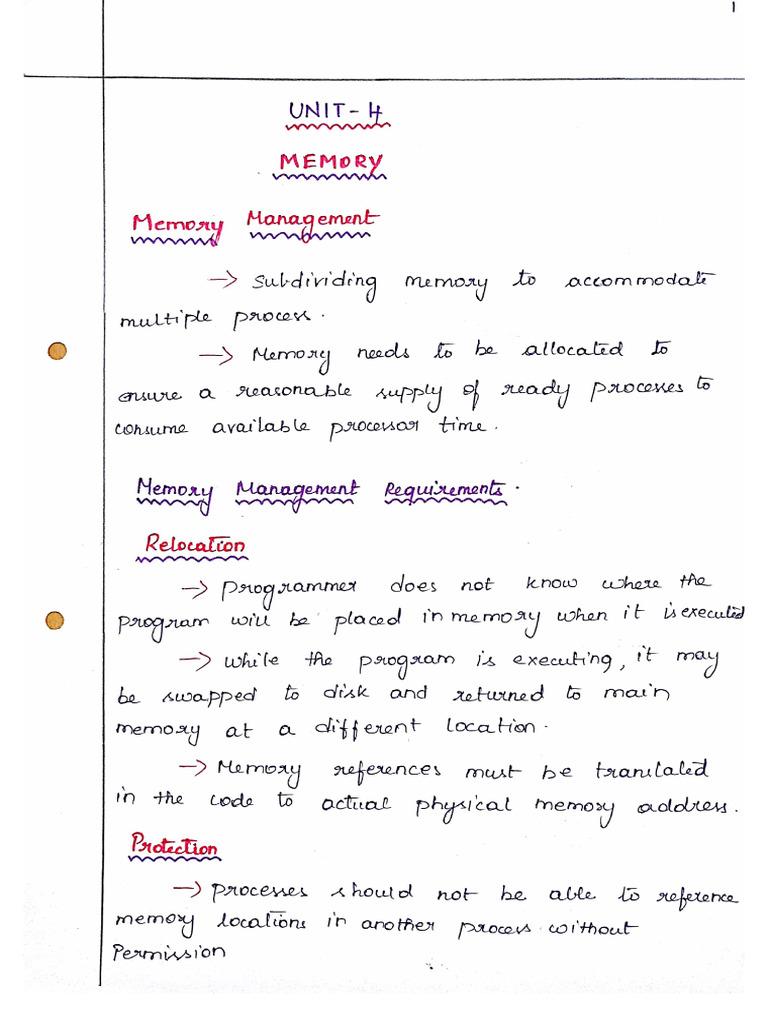 1
UNIT-4
MEMORY
Memory Management
→ Subdividing memory to accommodate
multiple process.
→ Memory needs to be allocated to
ensure a reasonable supply of ready processes to
consume available processor time.
Memory Management Requirements.
Relocation
→ programmer does not know where the
program will be placed in memory when it is executed
→ while the program is executing, it may
be swapped to disk and returned to main
memory at a different location.
→ Memory references must be translated
in the code to actual physical memory address.
Protection
→ processes should not be able to reference
memory locations in another process without
Permission